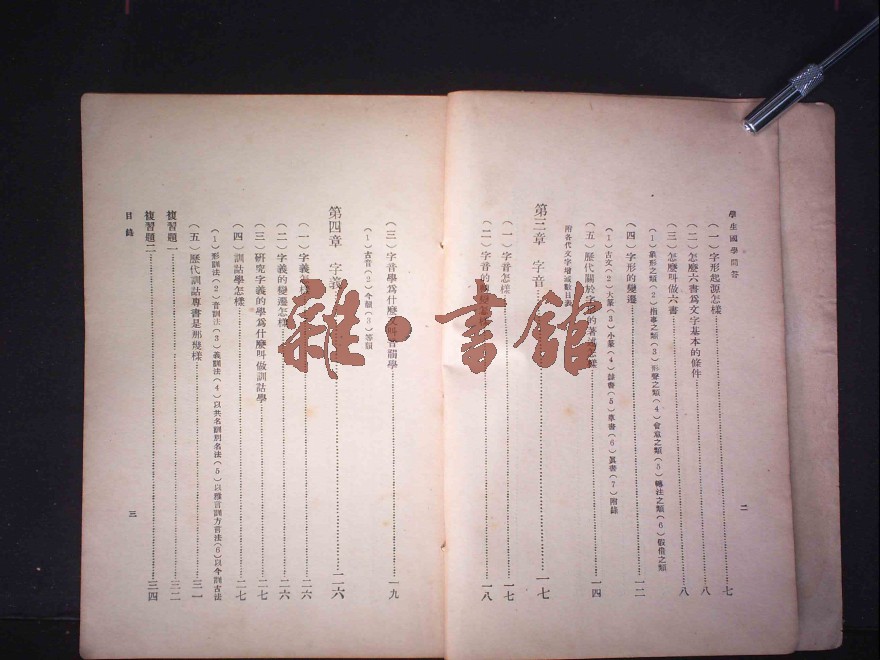 學生國學問答
二
(一)字形起源怎樣……七
(二)怎麼六書爲文字基本的條件……八
(三)怎麼叫做六書……八
(1)象形之類(2)指事之類(3)形聲之類(4)會意之類(5)轉注之類(6)假借之類
(四)字形的變遷……一二
(五)歷代關於字形的著述怎樣……一四
(1)古文(2)大篆(3)小篆(4)隸書(5)草書(6)眞書(7)附錄
附各代文字增減數目表
第三章 字音……一七
(一)字音怎樣……一七
(二)字音的變怎樣……一八
(三)字音學爲什麼又叫音韻學……一九
(1)古音(2)今韻(3)等韻
第四章 字義……二六
(一)字義怎樣……二六
(二)字義的變遷怎樣……二六
(三)研究字義的學爲什麼叫做訓詁學……二七
(四)訓詁學怎樣……二七
(1)形訓法(2)音訓法(3)義訓法(4)以共名訓別名法(5)以雅言訓方言法(6)以今訓古法
(五)歷代訓詁專書是那幾樣……三一
複習題一……三二
複習題二……三四
目錄
三
雜·書館